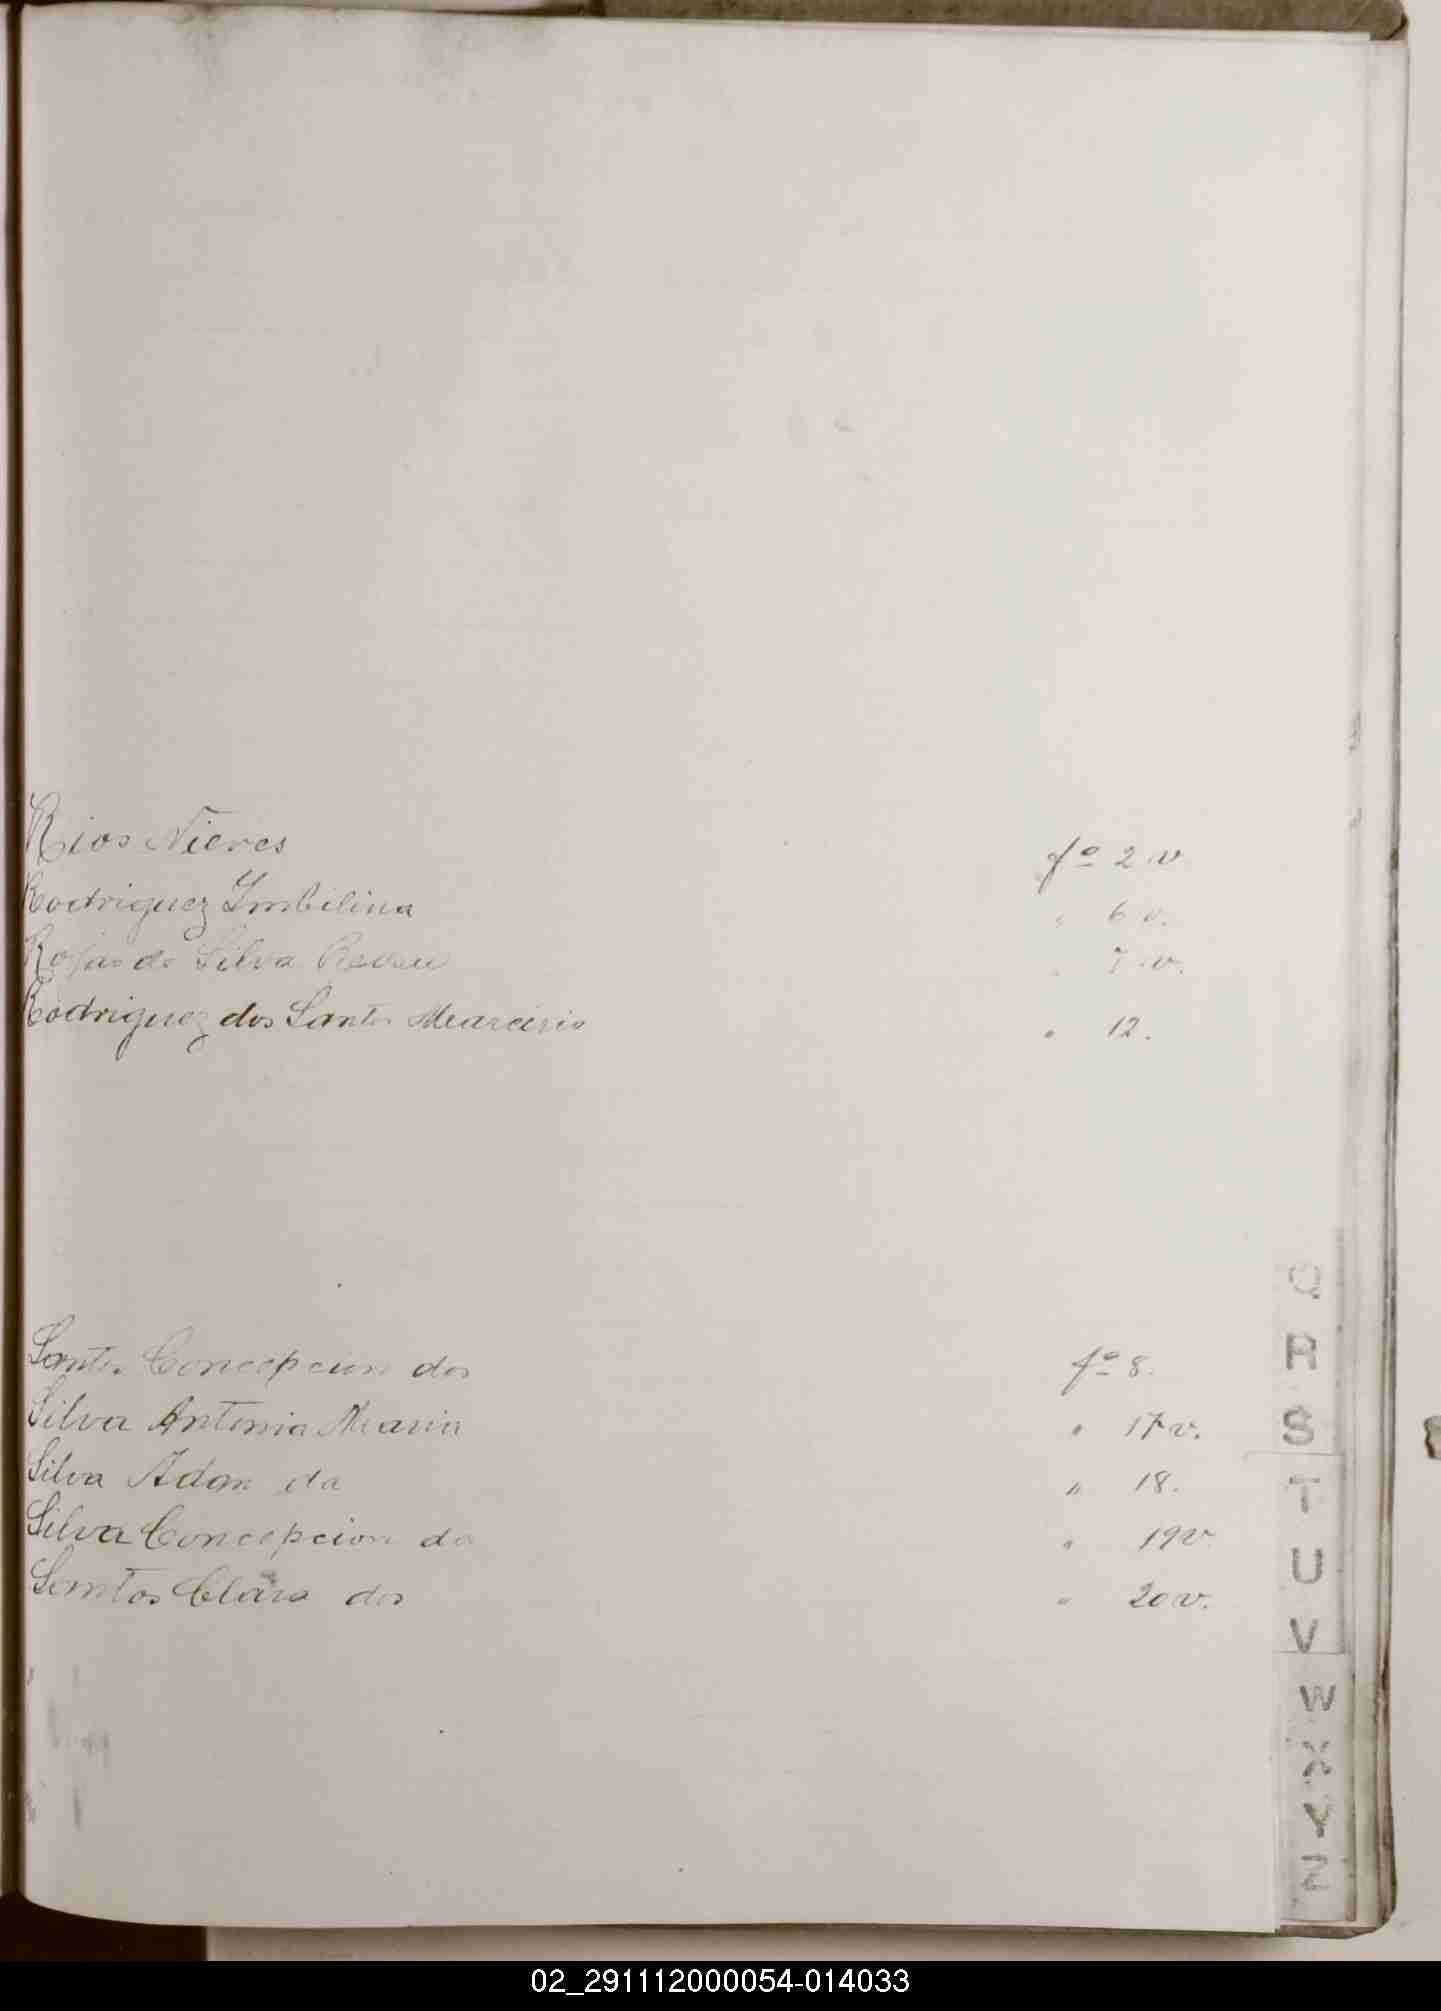 Rios Nieves fº 2 v
Rodriguez Imbilina " 6 v.
Rojas de Silva " 7 v.
Rodriguez dos Santos " 12.
Santos Concepcion dos fº 8.
Silva Antonia Maria " 17 v.
Silva Adan da " 18.
Silva Concepcion da " 19 v
Santos Clara dos " 20 v.
Q
R
S
T
U
V
W
X
Y
Z
02_291112000054-014033